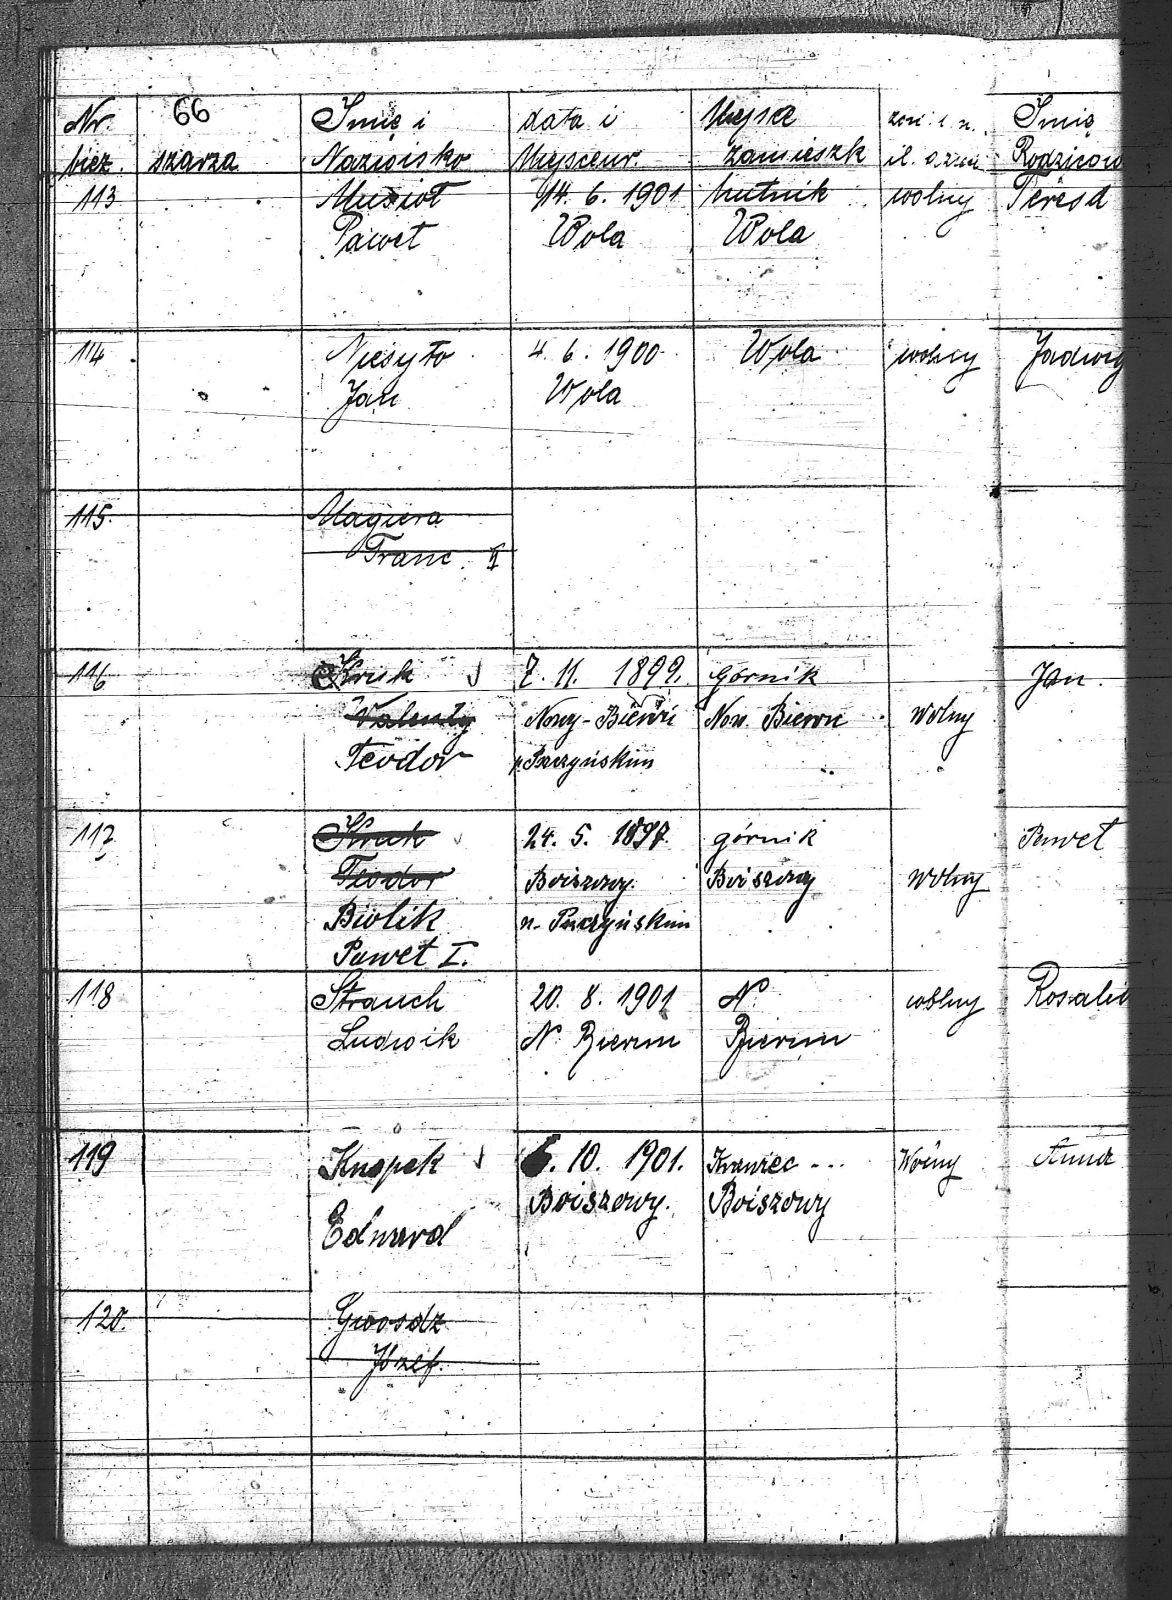 66
Nr. Imię i data i Miejsce żon. i. n. Imię
bież. szarża Nazwisko Miejsceur. zamieszk il. Rodziców
113 Musioł 14. 6. 1901 hutnik wolny Teresa
Paweł Wola Wola
114 Niesyto 4. 6. 1900 Wola wolny Jadwig
Jan Wola
115. Magiera
Franc. II
116 Kruk 7. 11. 1899. górnik Jan.
Walenty Nowy-Bieruń Now. Bieruń wolny
Teodor p. Pszczyńskim
117 Kruk 24. 5. 1897. górnik Paweł
Teodor Boiszowy. Boiszowy wolny
Biolik n. Pszczyńskim
Paweł I.
118 Strauch 20. 8. 1901 N. wolny Rosali
Ludwik N. Bierun Bierun
119 Knopek 6. 10. 1901. Krawiec --- Wolny Anna
Boiszowy. Boiszowy
Edward
120. Gwosdz
Józef.